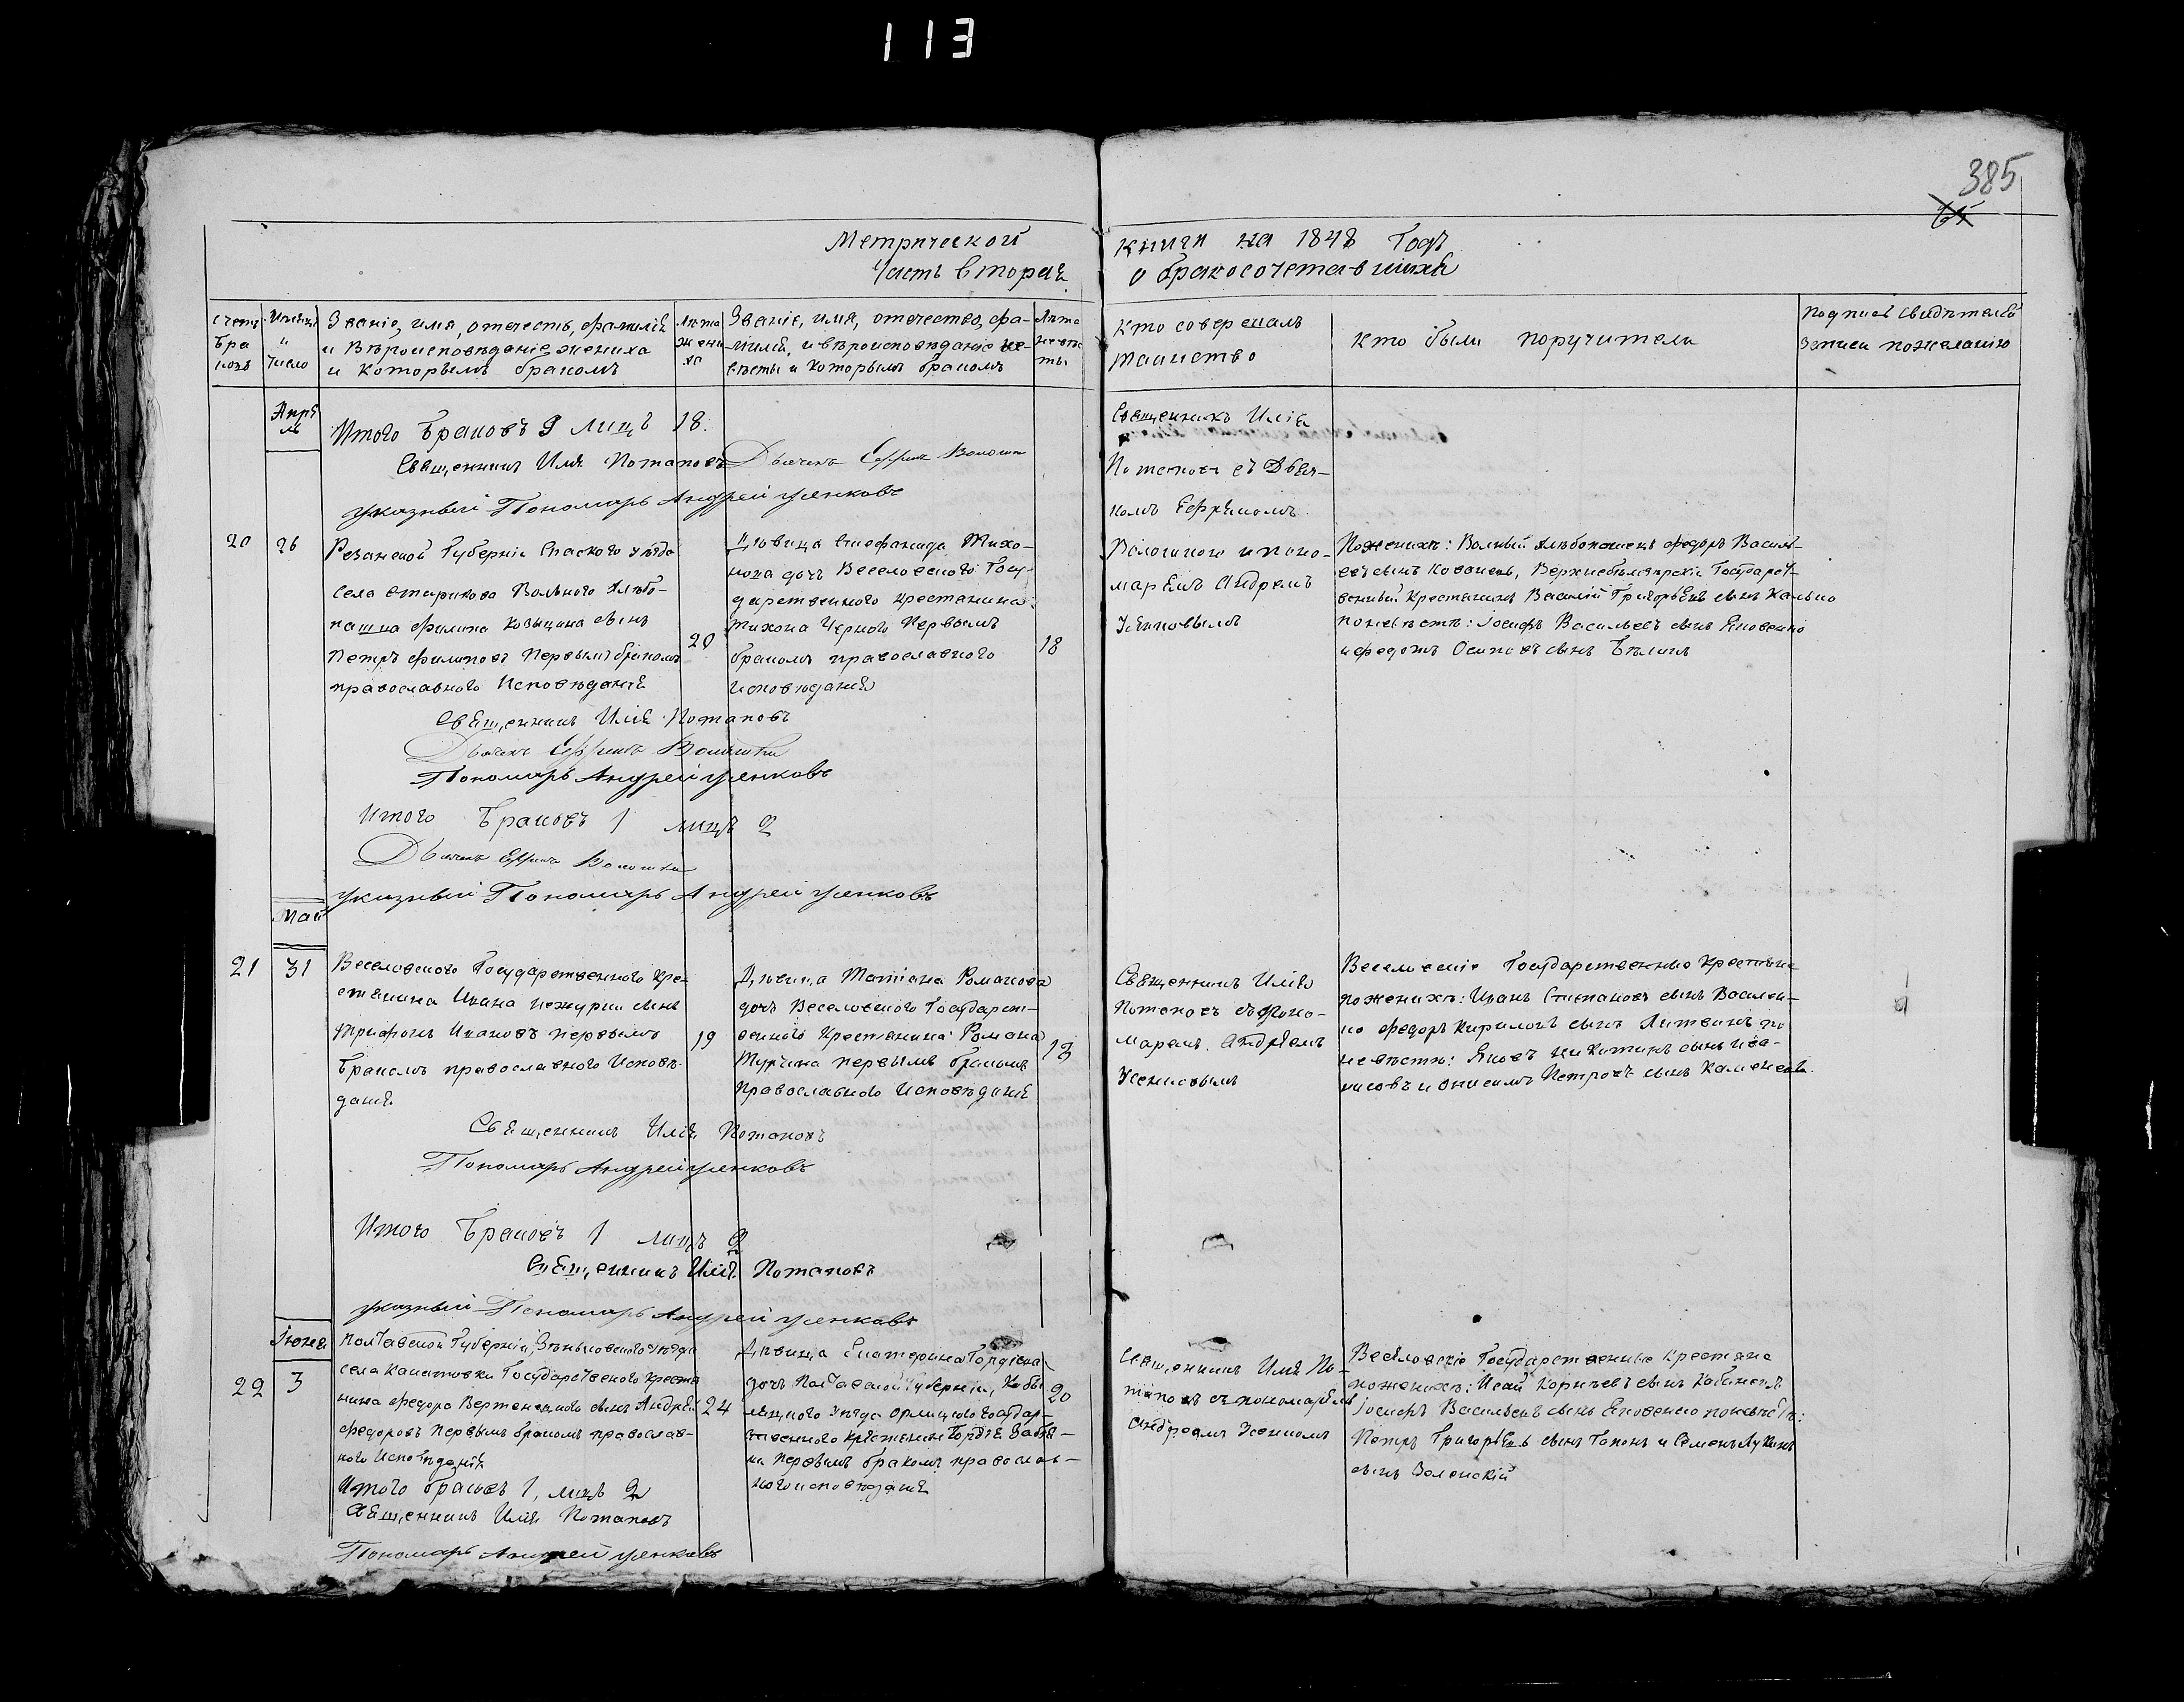 113
385
65
Метрической
Часть вторая
книги на 1848 Годъ
о бракосочетавшихся
Счетъ
бра
ковъ
Мѣсяцъ
и
Число
Званіе, имя, отечесть, фамилія
и Вѣроисповѣданіе жениха
и которымъ бракомъ
Лѣта
жени
ха
Званіе, имя, отечество, фа-
милія, и вѣроисповѣданіе не-
вѣсты и которымъ бракомъ
Лѣта
невѣс
ты
Кто совершалъ
таинство
Кто были поручители
Подписъ свидѣтелей
записи пожеланію
Апрѣ
ль
Итого Браковъ 9 лицъ 18.
Священникъ Илія Потаповъ Дьячекъ Ефремъ
указный Пономарь Андрей Усенковъ
20
26
Резанской Губерніи Спаского уѣзда
села старикова Вольного хлѣбо-
пашца филипа Козицина сынъ
Петръ филиповъ Первымъ бракомъ
православного Исповѣданія
20
Дѣвица Епифанида Тихо-
нова дочъ Веселовского Госу-
дарственного крестянина
Тихона Чѣрного Первымъ
бракомъ православного
исповѣданія
18
Священникъ Илія
Потаповъ съ Дьяч-
комъ Ефремомъ
и поно-
маремъ Андремъ
Поженихѣ: Вольный хлѣбопашецъ федоръ Василь-
евъ сынъ Государст-
венный крестянинъ Василій Григорьевъ сынъ
поневѣстѣ: Іосифъ Васильевъ сынъ Яковенко
и федотъ Осиповъ сынъ
Священникъ Илія Потаповъ
Дьячекъ Ефремъ
Пономарь Андрей Усенковъ
Итого Браковъ 1 лицъ 2
Дьячекъ Ефремъ
указный Пономарь Андрей Усенковъ
Май
21
31
Веселовского Государственного Кре-
стянина Ивана сынъ
Трифонъ Ивановъ первымъ
Бракомъ православного Исповѣ-
данія
19
Дѣвица Татіана Романова
дочъ Веселовского Государст-
венного Крестянина Романа
Турчина первымъ бракомъ
православного Исповѣданія
Священникъ Илія
Потаповъ съ поно-
маремъ Андремъ
Усенковымъ
Веселовскіе Государственные Крестяне
поженихѣ: Иванъ Степановъ сынъ Василен-
ко федоръ Кириловъ сынъ Литвинъ по
невѣстѣ: Яковъ Никитинъ сынъ
и Онисимъ Петровъ сынъ
Священникъ Илія Потаповъ
Пономарь Андрей Усенковъ
Итого Браковъ 1 лицъ 2
Священникъ Илія Потаповъ
указный Пономарь Андрей Усенковъ
Іюня
22
3
Полтавской Губерніи, Зѣньковского уѣзда
села Государственого крестя
нина федора сынъ Андрей
федоровъ Первымъ бракомъ православ-
ного Исповѣданія
24
Дѣвица Екатерина Гордіева
дочъ Полтавской Губерніи, Кобы
ляцкого Уѣзда государ-
ственного крестянина Гордія
Первымъ бракомъ православ-
ного исповѣданія
20
Священникъ Илія По-
таповъ съ пономаремъ
Андреемъ
Веселовскіе Государственные Крестяне
поженихѣ: Исай Корнѣевъ сынъ
Іосифъ Васильевъ сынъ Яковенко поневѣстѣ:
Петръ Григорьевъ сынъ и Семенъ Лукинъ
сынъ
Итого браковъ 1, лицъ 2
Священникъ Илія Потаповъ
Пономарь Андрей Усенковъ